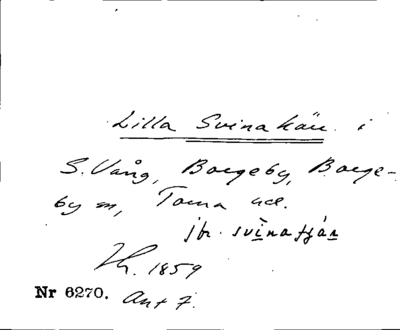 Lilla Svinakärr i
S. Vång, Borgeby, Borge-
by sn, Torna
jfr. svinatjärr
1859
Nr 6270. Ant 7.